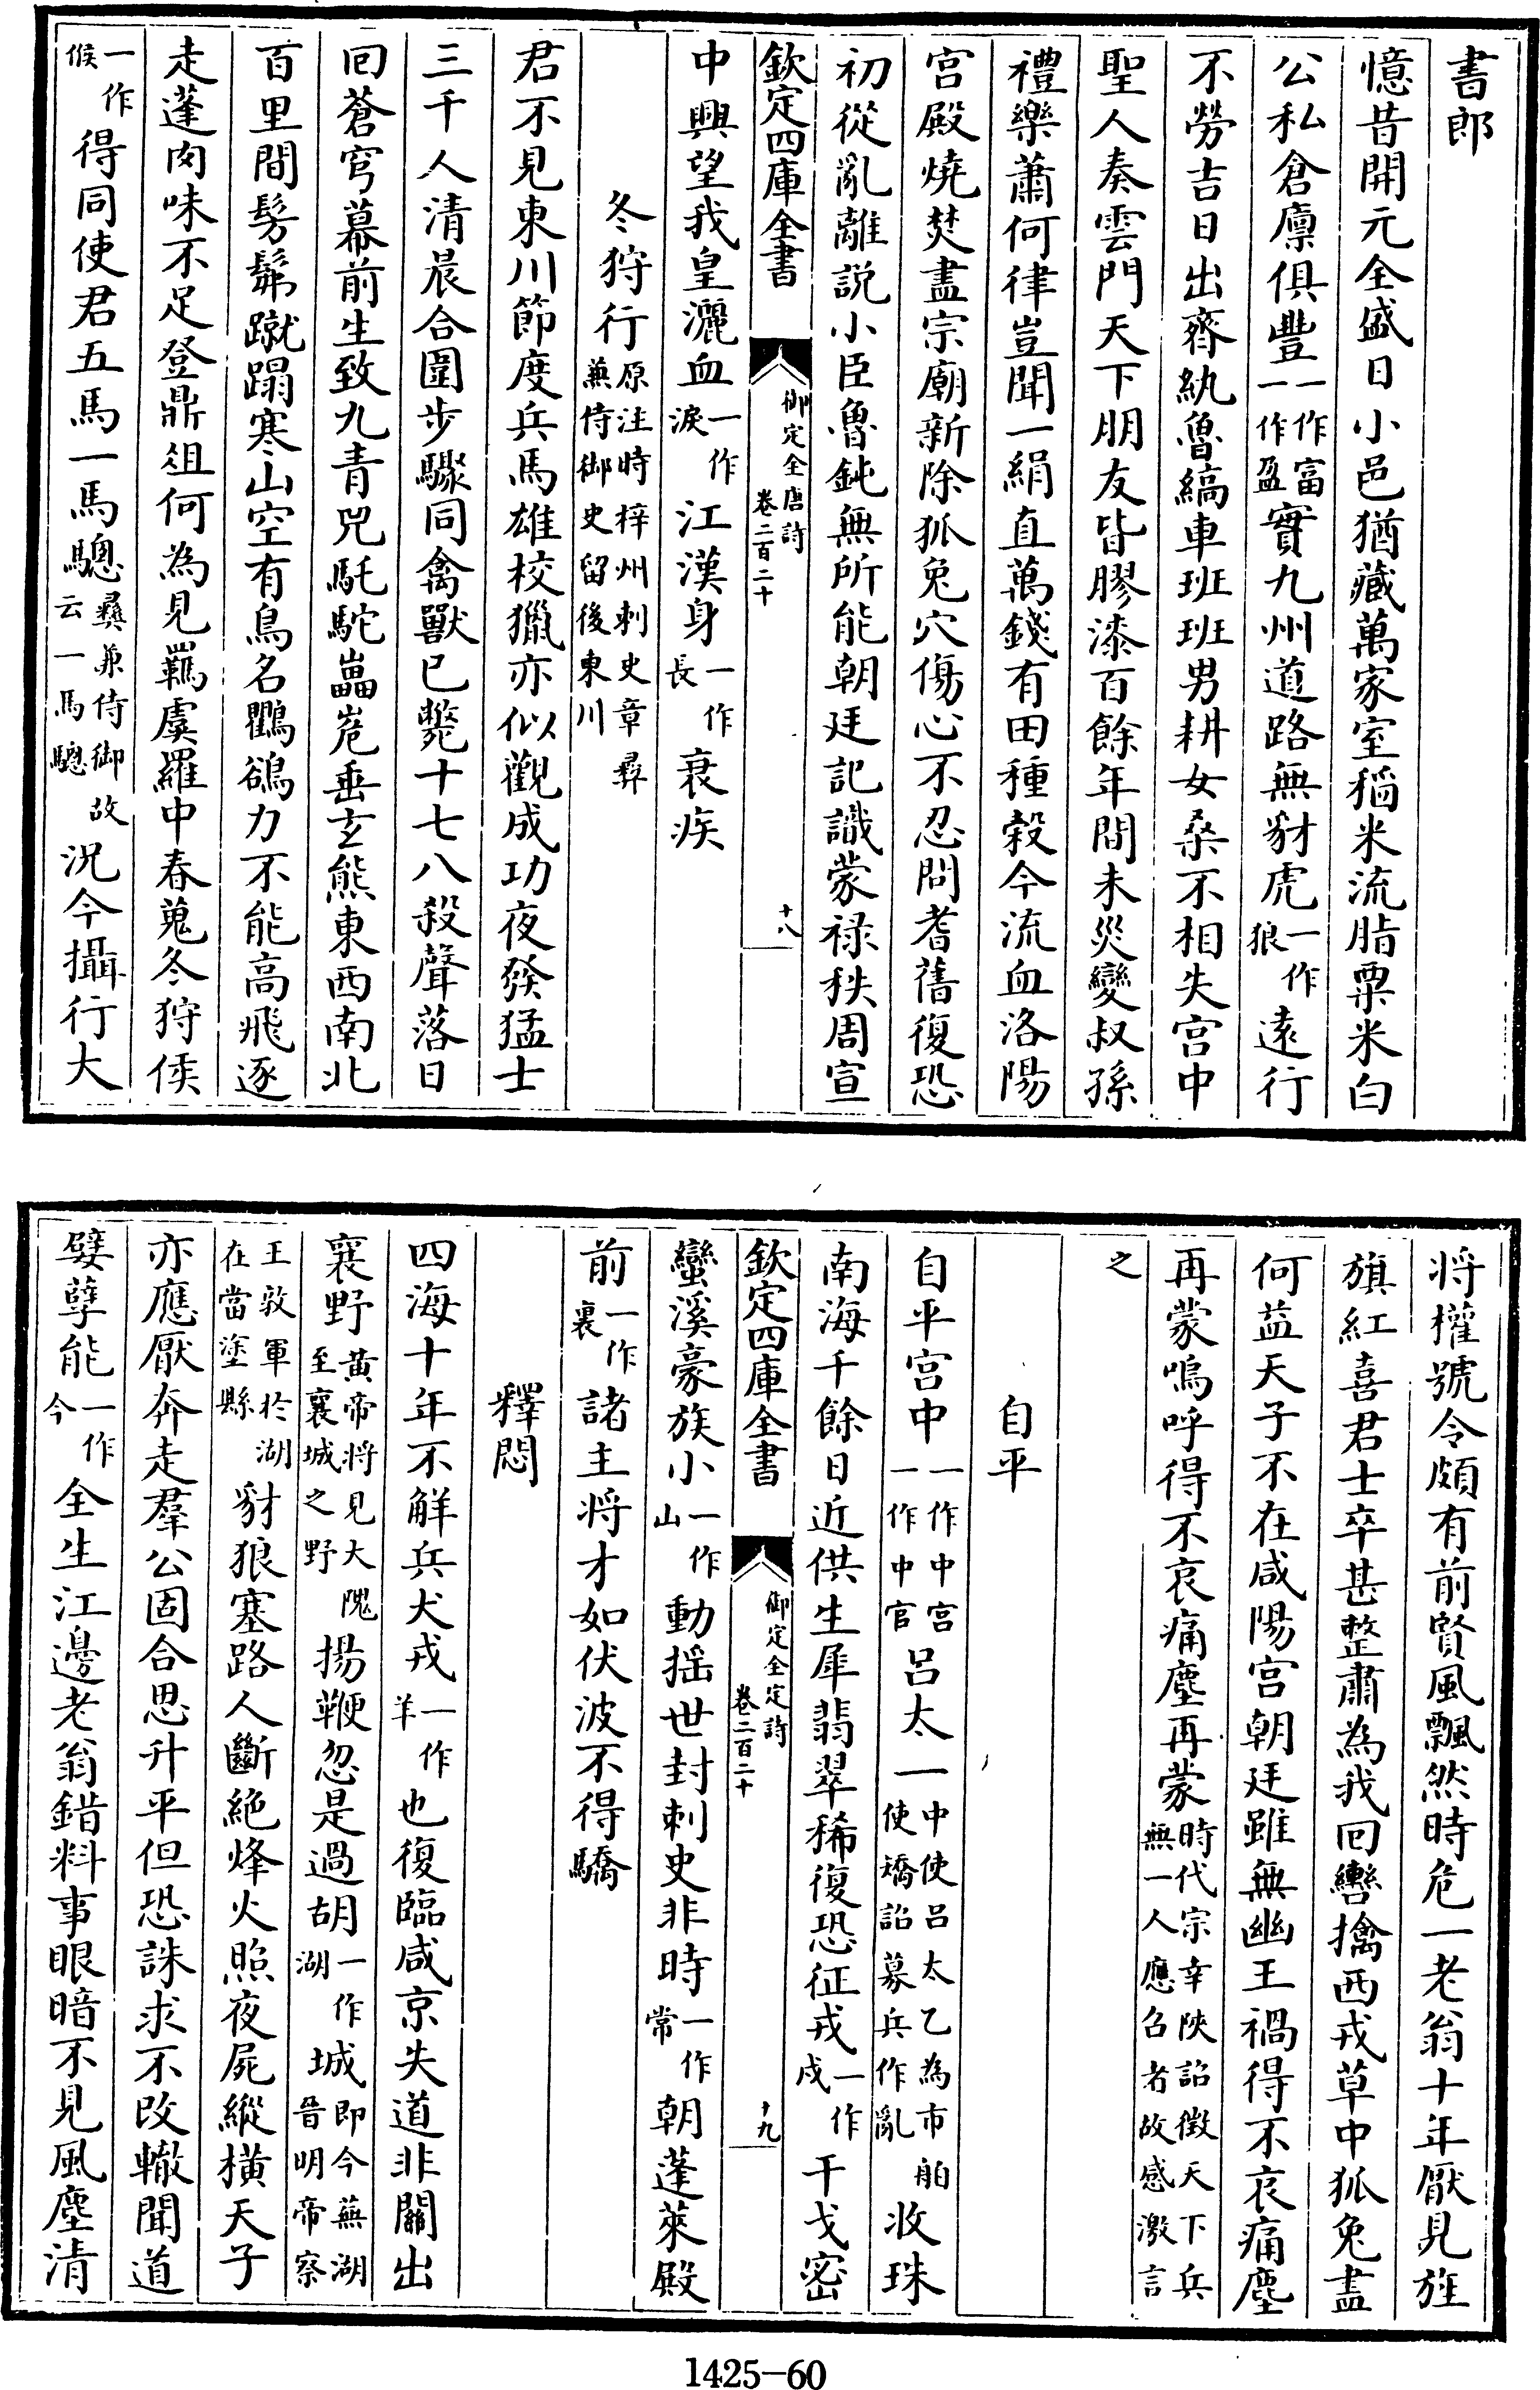 書郎
憶昔開元全盛日小邑猶藏萬家室稻米流脂粟米白
公私倉廩俱豐一作富一作盈實九州道路無豺虎一作狼遠行
不勞吉日出齊紈魯縞車班班男耕女桑不相失宮中
聖人奏雲門天下朋友皆膠漆百餘年間未災變叔孫
禮樂蕭何律豈聞一絹直萬錢有田種穀今流血洛陽
宮殿燒焚盡宗廟新除狐兔穴傷心不忍問耆舊復恐
初從亂離說小臣魯鈍無所能朝廷記識蒙祿秩周宣
欽定四庫全書 御定全唐詩 卷二百二十 十八
中興望我皇灑血一作淚江漢身一作長衰疾
冬狩行原注時梓州刺史章彞兼侍御史留後東川
君不見東川節度兵馬雄校獵亦似觀成功夜發猛士
三千人清晨合圍步驟同禽獸已斃十七八殺聲落日
回蒼穹幕前生致九青兕馲駝㠥峞垂玄熊東西南北
百里間髣髴蹴蹋寒山空有鳥名鸜鵒力不能高飛逐
走蓬肉味不足登鼎俎何為見羈虞羅中春蒐冬狩侯
一作候得同使君五馬一馬驄彞兼侍御故云一馬驄況今攝行大
將權號令頗有前賢風飄然時危一老翁十年厭見旌
旗紅喜君士卒甚整肅為我回轡擒西戎草中狐兔盡
何益天子不在咸陽宮朝廷雖無幽王禍得不哀痛塵
再蒙嗚呼得不哀痛塵再蒙時代宗幸陜詔徵天下兵無一人應召者故感激言
之
自平
自平宮中一作中宮一作中官呂太一中使呂太乙為市舶使矯詔募兵作亂收珠
南海千餘日近供生犀翡翠稀復恐征戎一作戍干戈密
欽定四庫全書 御定全定詩 卷二百二十 十九
蠻溪豪族小一作山動搖世封刺史非時一作常朝蓬萊殿
前一作裏諸主將才如伏波不得驕
釋悶
四海十年不解兵犬戎一作羊也復臨咸京失道非關出
襄野黃帝將見大隗至襄城之野揚鞭忽是過胡一作湖城即今蕪湖晉明帝察
王敦軍於湖在當塗縣豺狼塞路人斷絕烽火照夜屍縱橫天子
亦應厭奔走羣公固合思升平但恐誅求不改轍聞道
嬖孽能一作今全生江邊老翁錯料事眼暗不見風塵清
1425-60